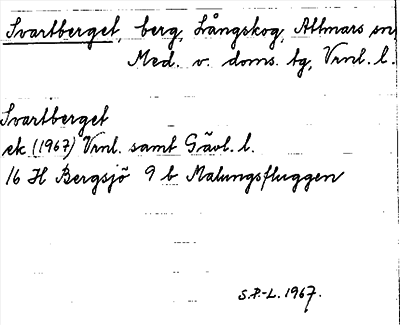 Svartberget, berg, Långskog, Attmars sn
Med. v. doms. tg, Vrnl. l.
Svartberget
ek (1967) Vrnl. samt Gävl. l.
16 H Bergsjö 9 b Malungsfluggen
S.P.-L. 1967.